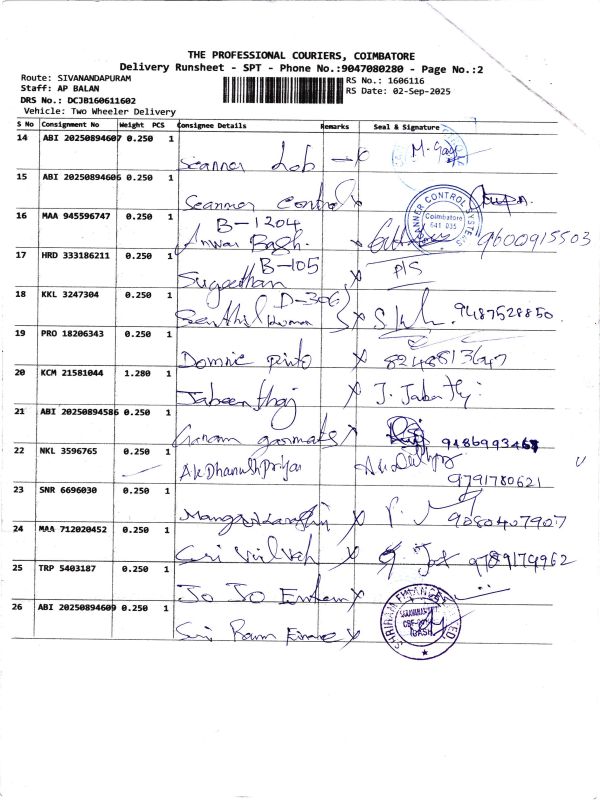 THE PROFESSIONAL COURIERS, COIMBATORE
Delivery Runsheet - SPT - Phone No.:9047080280 - Page No.:2
Route: SIVANANDAPURAM
RS No.: 1606116
Staff: AP BALAN
RS Date: 02-Sep-2025
DRS No.: DCJB160611602
Vehicle: Two Wheeler Delivery
S No Consignment No Weight PCS Consignee Details Remarks Seal & Signature
14 ABI 20250894607 0.250 1
Scanner Lab M. Gay
15 ABI 20250894606 0.250 1
Scanner Control
SCANNER CONTROL SYSTEMS
Coimbatore
641 035
16 MAA 945596747 0.250 1
B-1204
Anwar Bagh. 9600915503
17 HRD 333186211 0.250 1
B-105 P/S
Sugeethan
18 KKL 3247304 0.250 1
D-306
Senthil Kumar 9487528850
19 PRO 18206343 0.250 1
Domnic Pinto 8248813647
20 KCM 21581044 1.280 1
Jabeenthaj J. Jabeenthj
21 ABI 20250894586 0.250 1
Garments
22 NKL 3596765 0.250 1
AK Dhanushpriya
9791780621
23 SNR 6696030 0.250 1
9080407907
24 MAA 712020452 0.250 1
Sri 9789179962
25 TRP 5403187 0.250 1
Jo Jo
26 ABI 20250894609 0.250 1
Sri Ram Finance
SHRIRAM FINANCE LIMITED